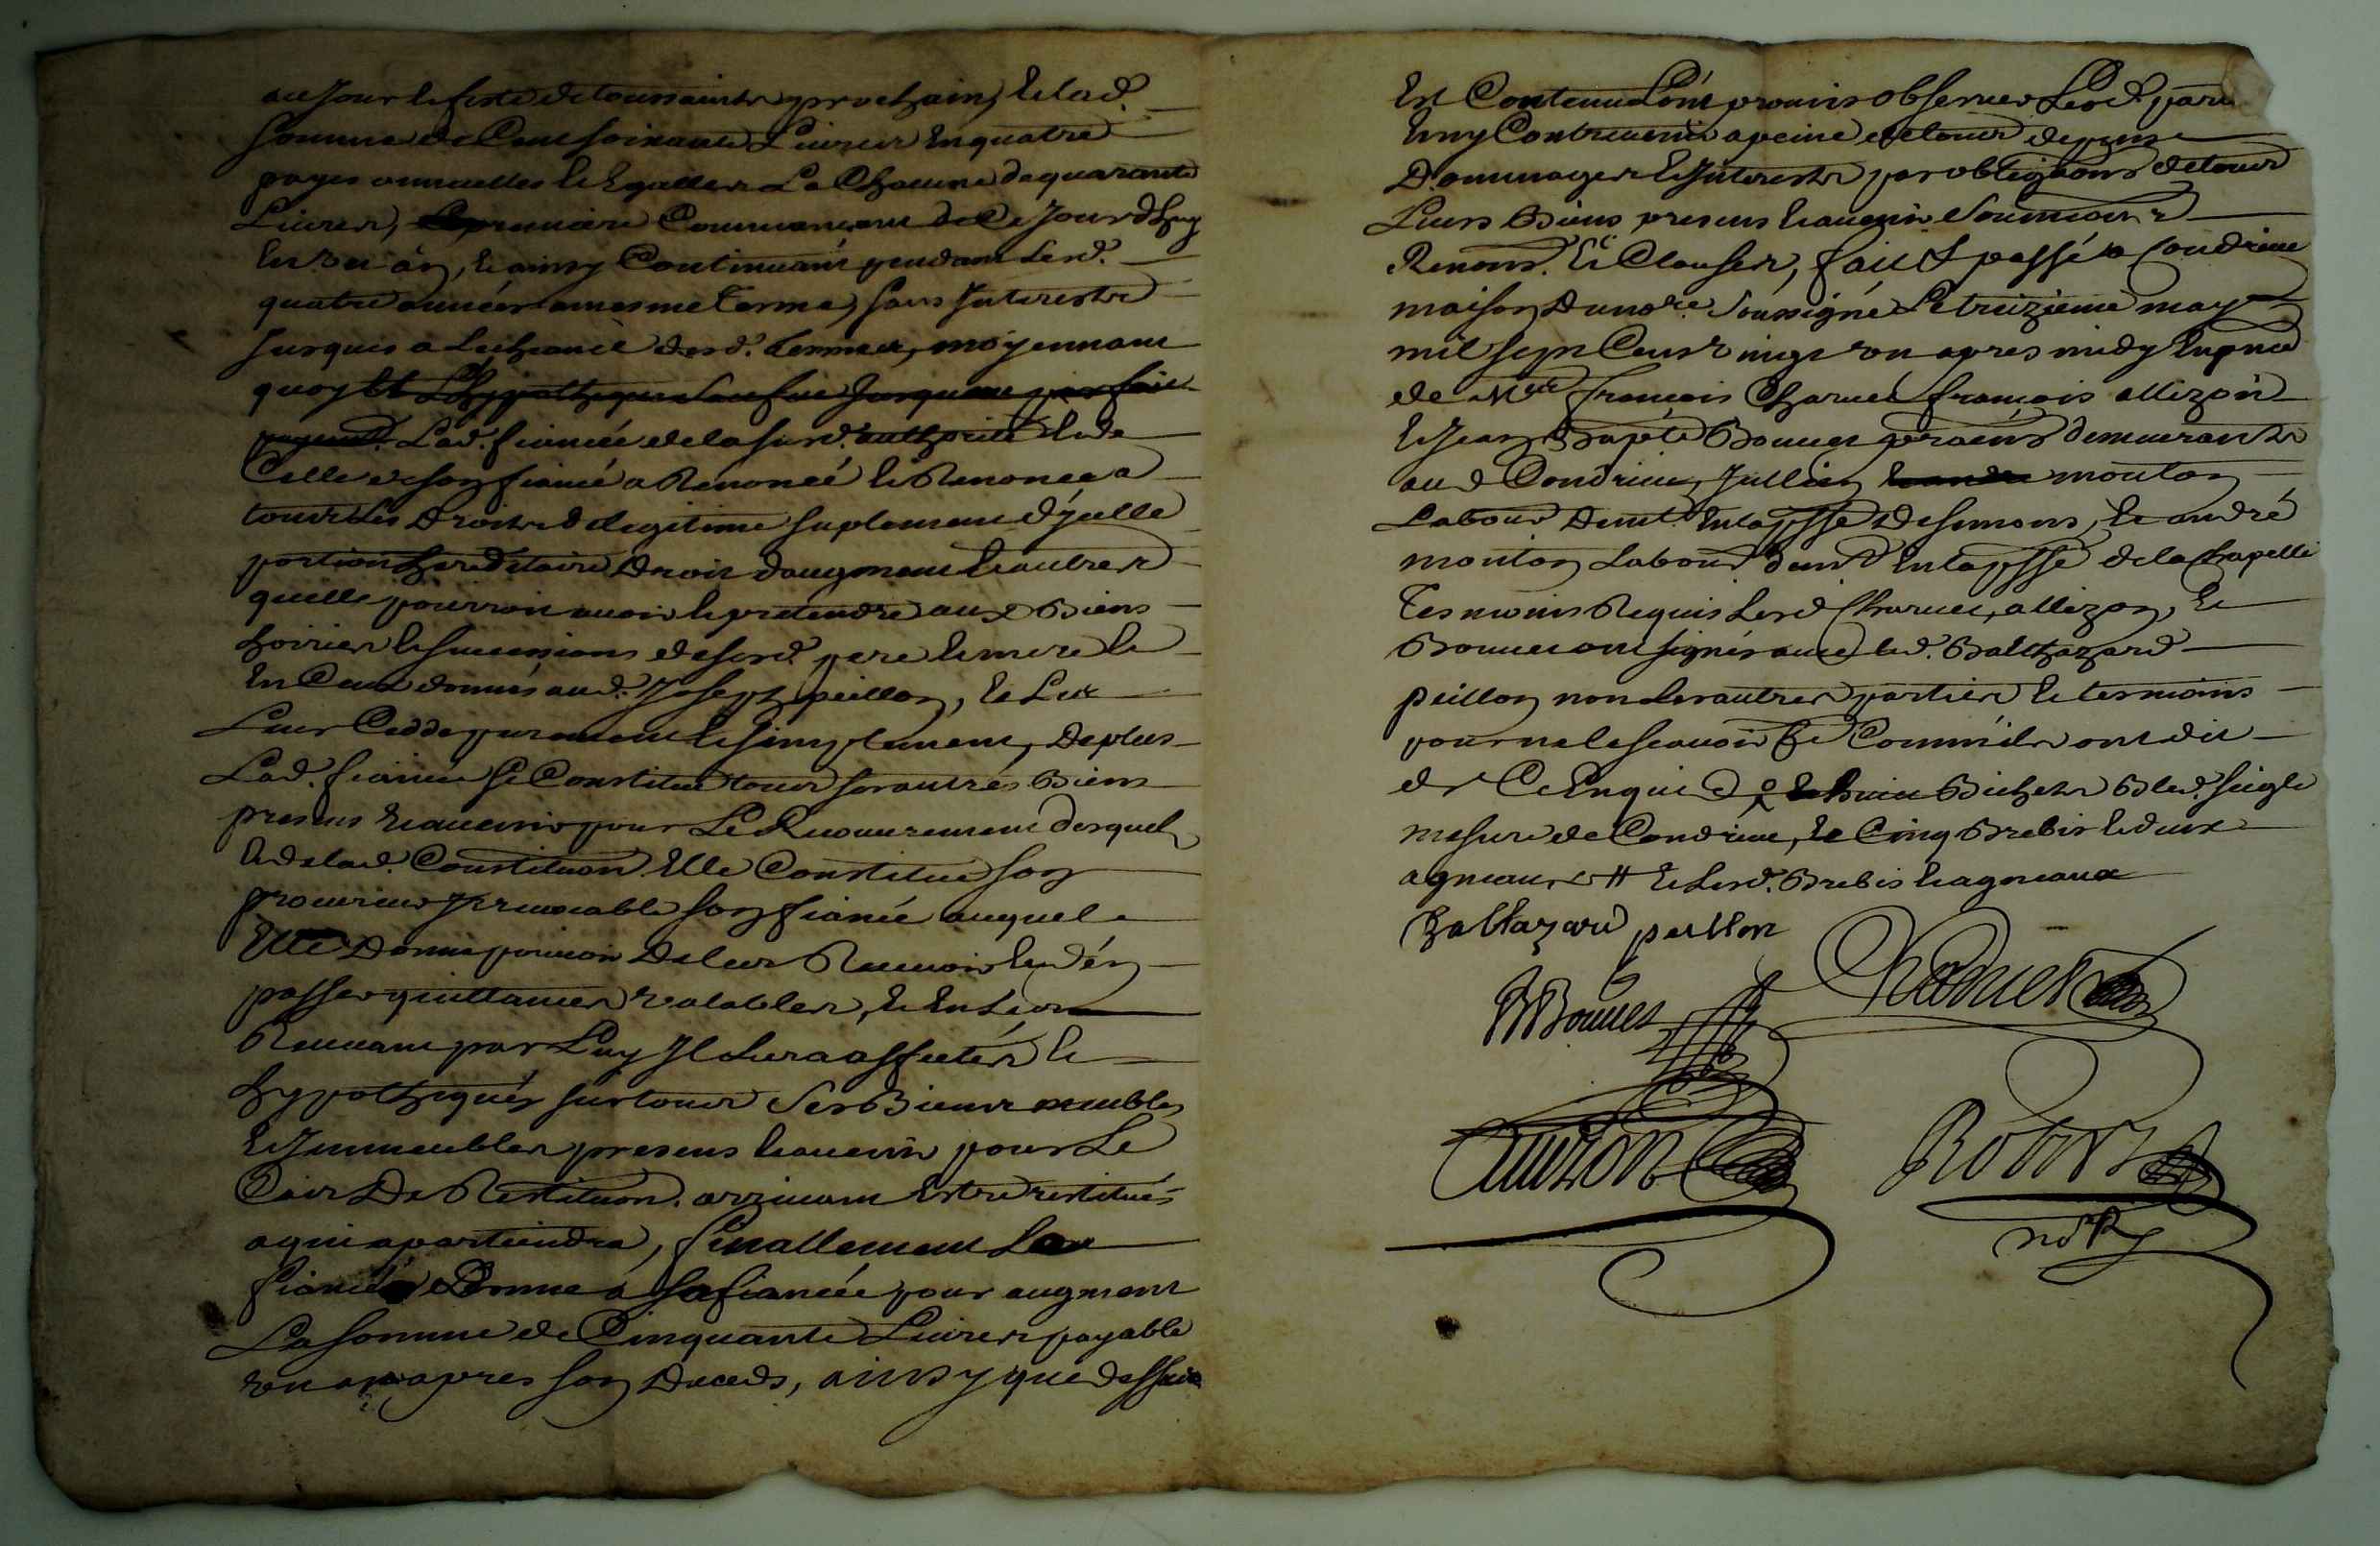 au Jour & feste de toussaincts prochain, & lad.
somme de Cent soixante Livres En quatre
payes annuelles & Egalles La Chacune de quarante
Livres, Commancant de Ce Jourdhuy
En un an, & ainsy Continuant pendant lesd.
quatre années a mesme terme, sans Interestz
Jusques a Lecheance desd. termes, moyennant
quoy Et L'hypotheque sauf Jusques au parfait
payement. Lad. fiancée de la susd. authorité & de
Celle de son fiancé a Renoncé & Renonce a
tous ses Droits de legitime suplement d'ycelle
portion hereditaire Droit d'augment & autres
quelle pourroit avoir & pretendre aux Biens
hoiries & successions de sesd. pere & mere &
En Ceux donnés aud. Joseph peillon, & Les
Leur Cedde purement & simplement, De plus
Lad. fiancée se Constitue tous ses autres Biens
presens & advenir pour Le Recouvrement desquels
& de lad. Constitution Elle Constitue son
procureur Irrevocable son fiancé auquel
Elle Donne pouvoir De les Recevoir & d'en
passer quittances valables, & En Les
Recevant par Luy Il Les a affectés &
hypothequés sur tous ses Biens meubles
& Immeubles presens & advenir pour Le
Cas De Restitution arrivant Estre restitués
a qui apartiendra, finallement Led.
fiancé Donne a sa fiancée pour augment
La somme de Cinquante Livres payable
un an apres son Deceds, ainsy que dessus
Est Contenu L'ont promis observer Lesd. parties
& ny Contrevenir a peine de tous depens
Dommages & Interestz par obligations de tous
Leurs Biens presens & advenir soumissions
Renons. & Clauses, fait & passé a Condrieu
maison Du nore. soussigné Le treizieme may
mil sept Cent vingt un apres midy En pnce
de Mre francois Charvet francois allizon
& Jean Bapte Bonnet praticiens demeurants
aud Condrieu, Jullien mouton
Labour Demt. En la psse De simons, & andré
mouton Labour demt En la psse de la Chapelle
Tesmoins Requis Lesd Charvet, allizon, &
Bonnet ont signés avec led. Balthazard
peillon non Les autres parties & tesmoins
pour ne le scavoir de Ce
Enquis & Bichets Bled. seigle
mesure de Condrieu, & Cinq Brebis & deux
agneaux # & Lesd. Brebis & agneaux
Baltazard peillon
Charvet
JBBonnet
Robert
notre